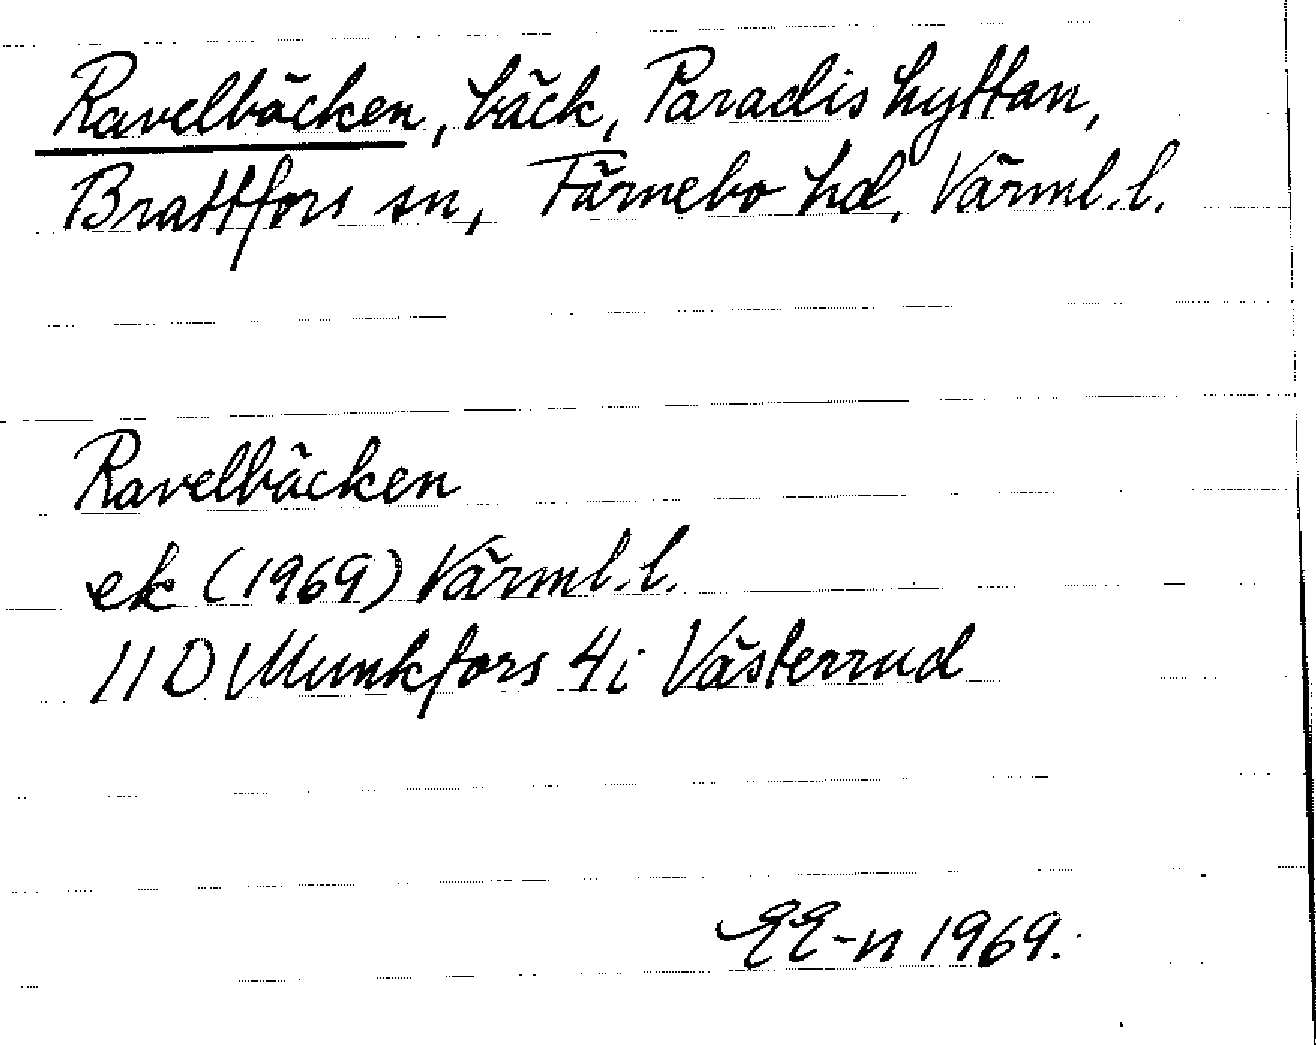 Ravelbäcken, bäck, Paradishyttan,
Brattfors sn, Färnebo hd, Värml. l.
Ravelbäcken
ek (1969) Värml. l.
11 D Munkfors 4i Västerrud
EE-n 1969.